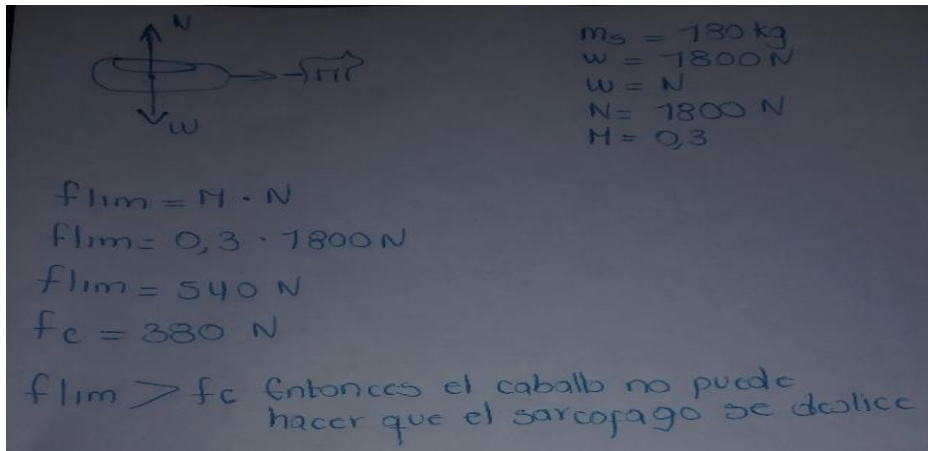 N
W
ms = 180 kg
w = 1800 N
w = N
N = 1800 N
M = 0,3
flim = M . N
flim = 0,3 . 1800 N
flim = 540 N
fc = 380 N
flim > fc Entonces el caballo no puede
hacer que el sarcofago se deslice